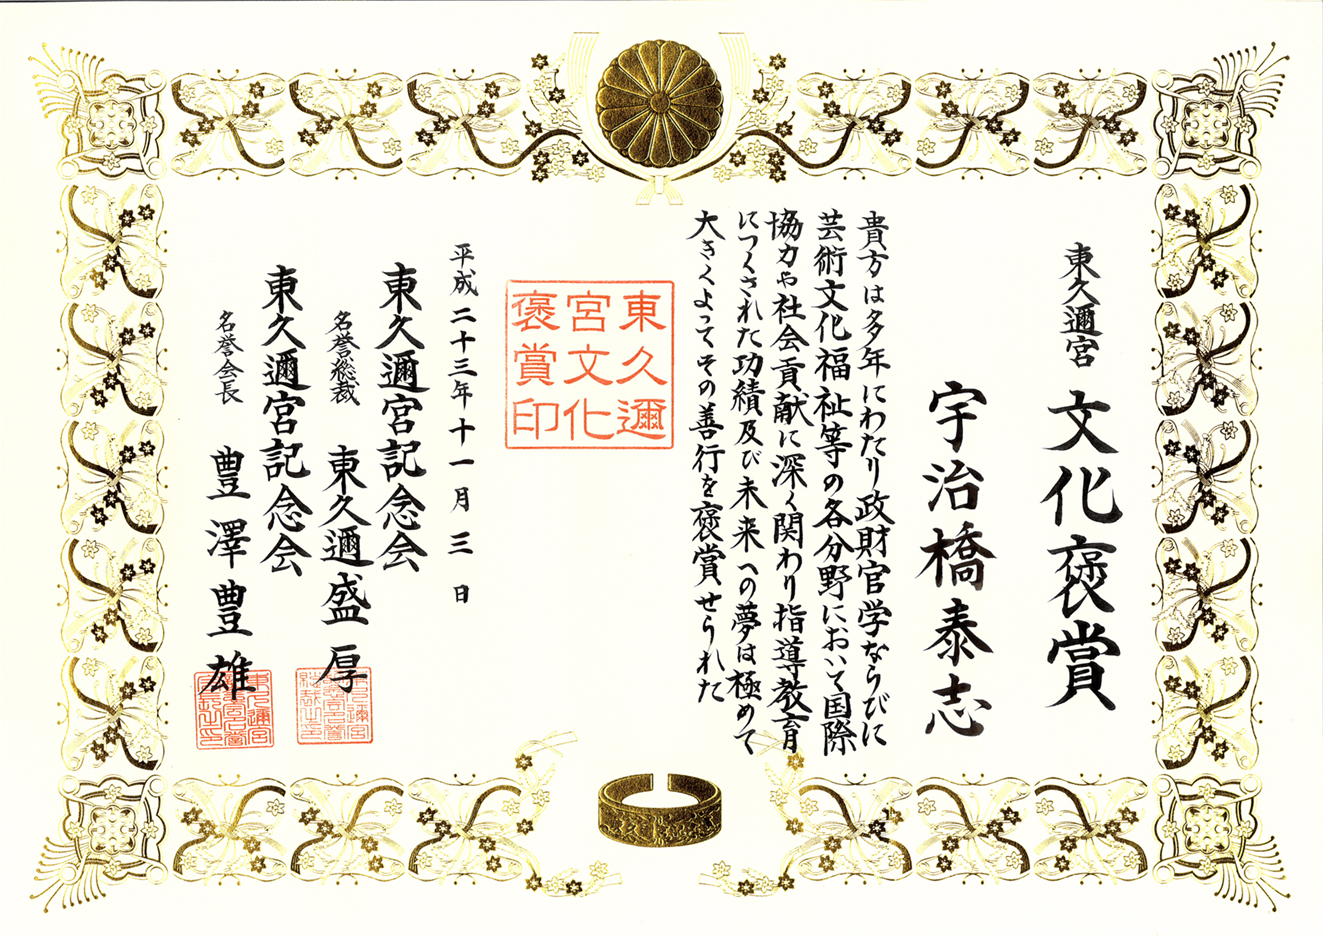 東久邇宮 文化褒賞
宇治橋泰志
貴方は多年にわたり政財官学ならびに
芸術文化福祉等の各分野において国際
協力や社会貢献に深く関わり指導教育
につくされた功績及び未来への夢は極めて
大きくよってその善行を褒賞せられた
東久邇
宮文化
褒賞印
平成二十三年十一月三日
東久邇宮記念会
名誉総裁 東久邇盛厚
東久邇宮記念会
名誉会長 豊澤豊雄